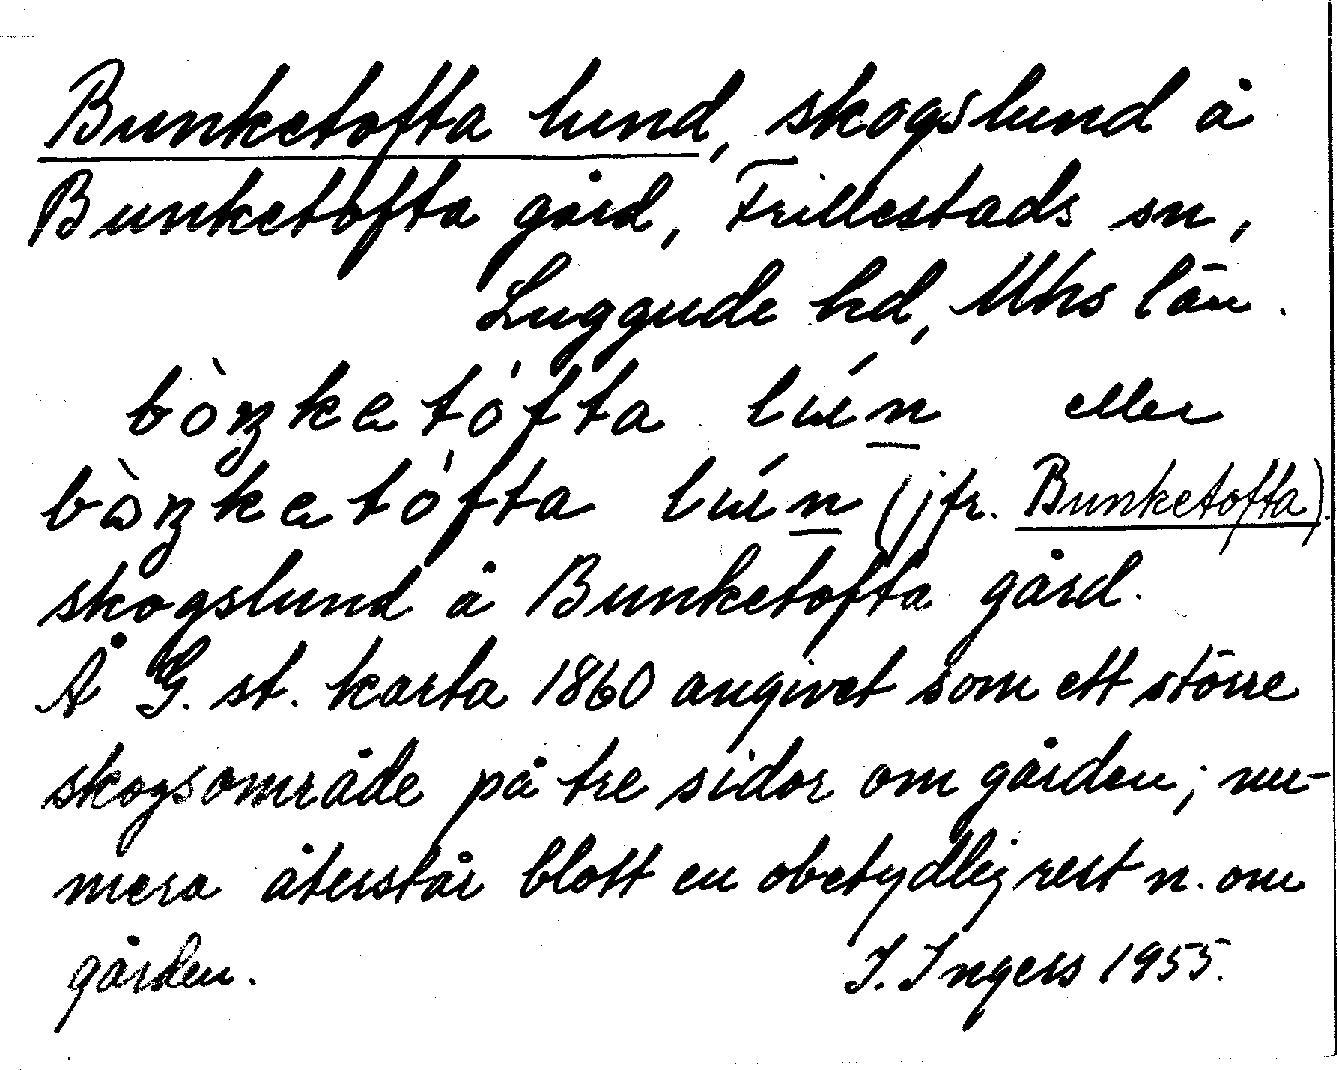 Bunketofta lund, skogslund å
Bunketofta gård, Frillestads sn,
Luggude hd, Mhs län.
bòŋketófta lúun eller
bòŋketófta lúun (jfr. Bunketofta).
skogslund å Bunketofta gård.
Å G. st. karta 1860 angivet som ett större
skogsområde på tre sidor om gården; nu-
mera återstår blott en obetydlig rest n. om
gården. I. Ingers 1955.